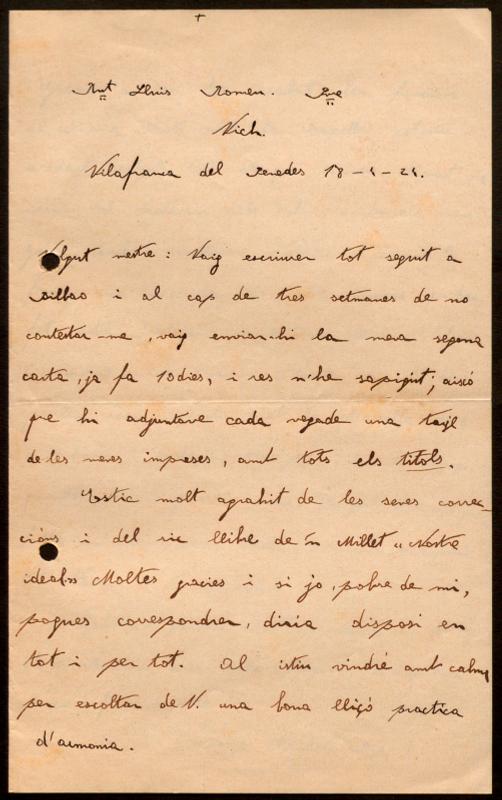 +
Rnt Lluis Romeu. Pve
Vich.
Vilafranca del Penedes 18-4-24.
Volgut mestre: Vaig escriurer tot seguit a
Bilbao i al cap de tres setmanes de no
contestar-me, vaig enviar-hi la meva segona
carta, ja fa 10 dies, i res n'he sapigut; aixó
que hi adjuntave cada vegade una
de les meves impreses, amb tots els titols.
Estic molt agrahit de les seves correc-
cións i del llibre de'n Millet "Nostre
ideal". Moltes gracies i si jo, pobre de mi,
pogues correspondrer, diria disposi en
tot i per tot. Al istiu vindré amb calma
per escoltar de V. una bona lliçó practica
d'armonia.